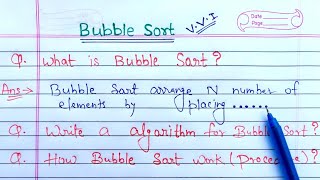 Bubble Sort
V.V.I
Date
Page
Q. What is Bubble Sort?
Ans→ Bubble Sort arrange N number of
elements by placing ......
Q. Write a algorithm for Bubble Sort?
Q. How Bubble Sort work (Procedure)?